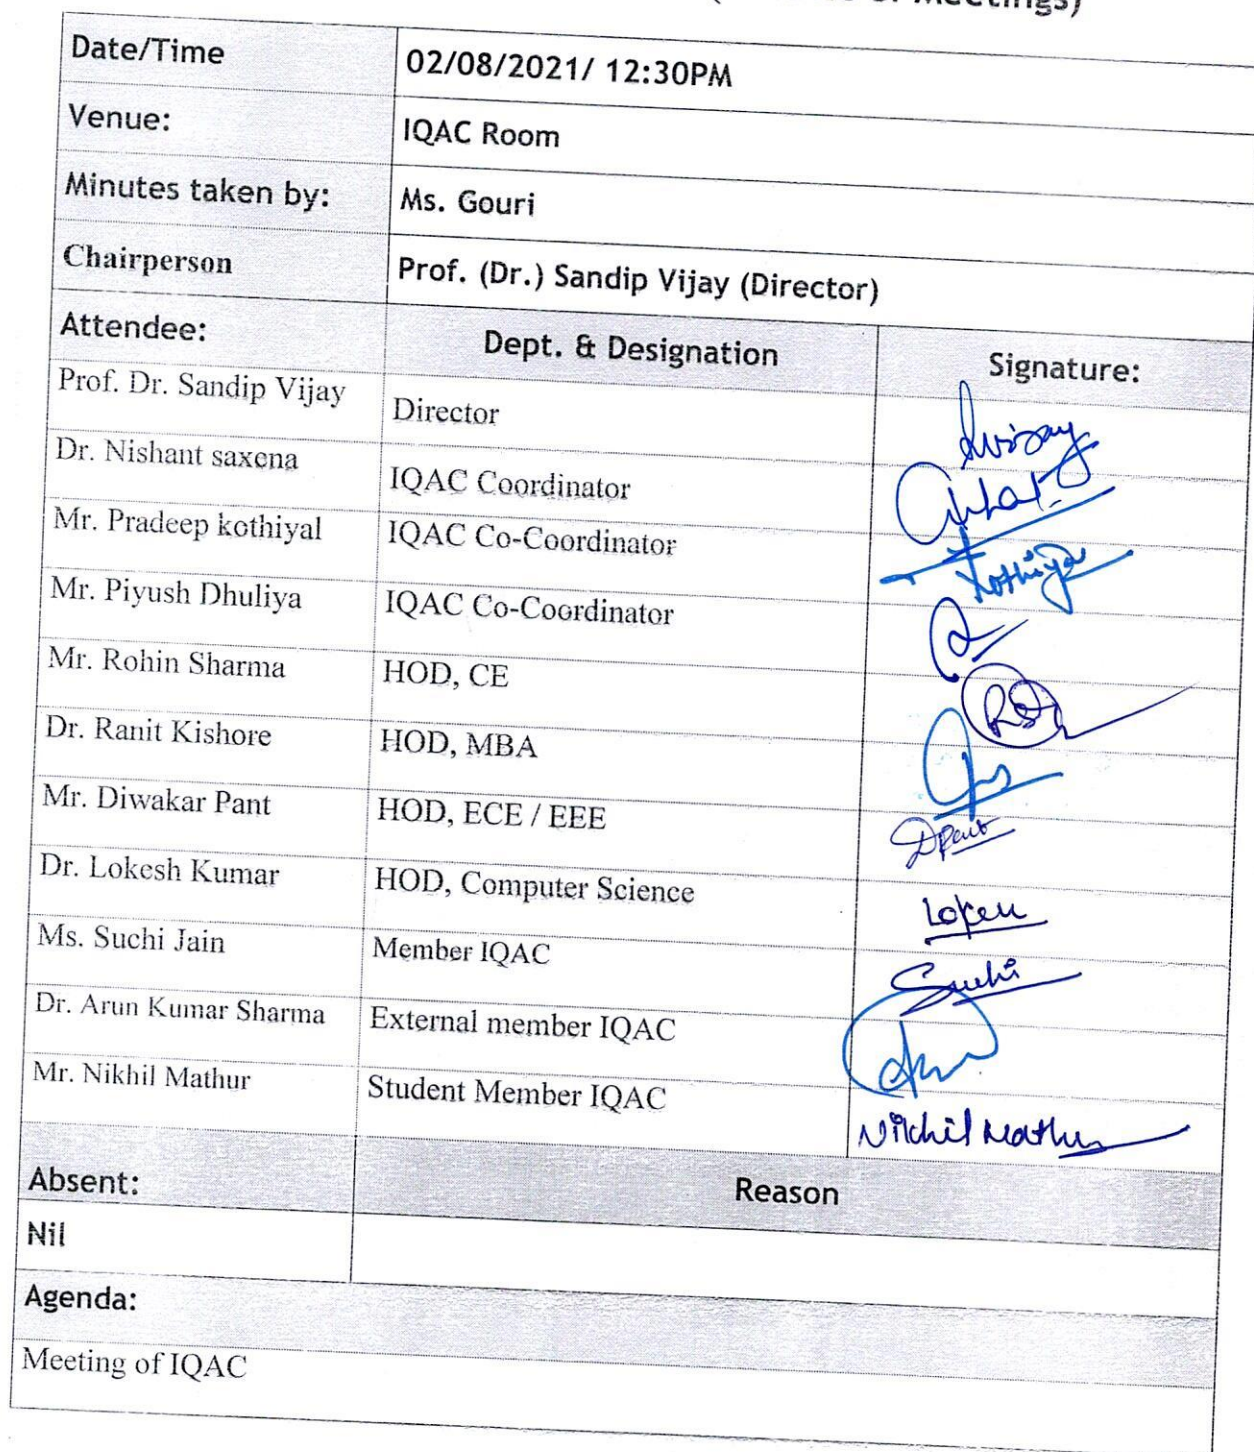 Meetings)
Date/Time 02/08/2021/ 12:30PM
Venue: IQAC Room
Minutes taken by: Ms. Gouri
Chairperson Prof. (Dr.) Sandip Vijay (Director)
Attendee: Dept. & Designation Signature:
Prof. Dr. Sandip Vijay Director
Dr. Nishant saxena IQAC Coordinator
Mr. Pradeep kothiyal IQAC Co-Coordinator Kothiyal
Mr. Piyush Dhuliya IQAC Co-Coordinator
Mr. Rohin Sharma HOD, CE
Dr. Ranit Kishore HOD, MBA
Mr. Diwakar Pant HOD, ECE / EEE DPant
Dr. Lokesh Kumar HOD, Computer Science
Ms. Suchi Jain Member IQAC Suchi
Dr. Arun Kumar Sharma External member IQAC
Mr. Nikhil Mathur Student Member IQAC Nikhil Mathur
Absent: Reason
Nil
Agenda:
Meeting of IQAC